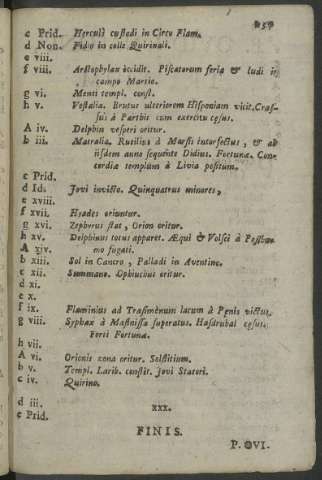 257
e Prid. Herculi custodi in Circo Flam.
d Non. Fidio in colle Quirinali.
e viii.
f viii. Arctophylax occidit. Piscatorum feria & ludi in
campo Martio.
g vi. Menti templ. const.
h v. Vestalia. Brutus ulteriorem Hispaniam vicit. Cras-
sus à Parthis cum exercitu cæsus.
A iv. Delphin vesperi oritur.
b iii. Matralia. Rutilius à Marsis interfectus, & ab
iisdem anno sequente Didius. Fortunæ. Con-
cordiæ templum à Livia positum.
c Prid.
d Id. Jovi invicto. Quinquatrus minores,
e xviii.
f xvii. Hyades oriuntur.
g xvi. Zephyrus flat, Orion oritur.
h xv. Delphinus totus apparet. Æqui & Volsci à Posthu-
A xiv. mo fugati.
b xiii. Sol in Cancro, Palladi in Aventino.
c xii. Summano. Ophiuchus oritur.
d xi.
e x.
f ix. Flaminius ad Trasimenum lacum à Pœnis victus.
g viii. Syphax à Masinissa superatus. Hasdrubal cæsus.
Forti Fortunæ.
h vii.
A vi. Orionis zona oritur. Solstitium.
b v. Templ. Larib. constit. Jovi Statori.
c iv. Quirino.
d iii.
e Prid.
xxx.
FINIS.
P. OVI.